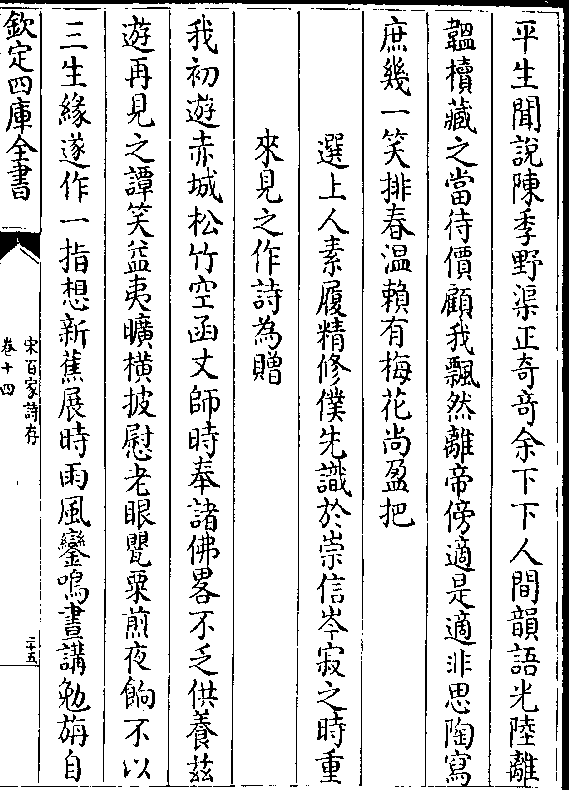 平生聞說陳季野渠正奇奇余下下人間韻語光陸離
韞櫝藏之當待價顧我飄然離帝傍適是適非思陶寫
庶幾一笑排春溫賴有梅花尚盈把
選上人素履精修僕先識於崇信岑寂之時重
來見之作詩為贈
我初遊赤城松竹空函丈師時奉諸佛畧不乏供養兹
遊再見之譚笑益夷曠橫披慰老眼甖粟煎夜餉不以
三生緣遂作一指想新蕉展時雨風鑾鳴晝講勉旃自
欽定四庫全書
宋百家詩存
卷十四
二十五